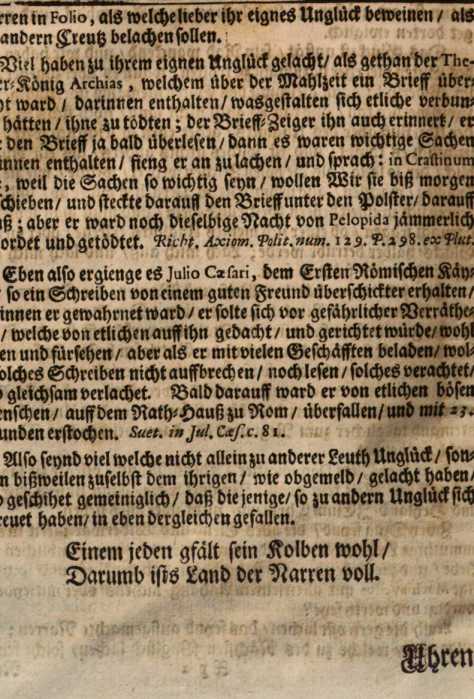 rren in Folio, als welche lieber ihr eignes Unglück beweinen / als
andern Creutz belachen sollen.
Viel haben zu ihrem eignen Unglück gelacht / als gethan der The-
er-König Archias, welchem über der Mahlzeit ein Brieff über-
ht ward / darinnen enthalten / wasgestalten sich etliche verbun-
hätten / ihne zu tödten; der Brieff-Zeiger ihn auch erinnert / er
den Brieff ja bald überlesen / dann es waren wichtige Sachen
innen enthalten / fieng er an zu lachen / und sprach: in Crastinum
, weil die Sachen so wichtig seyn / wollen Wir sie biß morgen
schieben / und steckte darauff den Brieff unter den Polster / darauff
ß; aber er ward noch dieselbige Nacht von Pelopida jämmerlich
ordet und getödtet. Richt. Axiom. Polit. num. 129. P. 298. ex Plut.
Eben also ergienge es Julio Cæsari, dem Ersten Römischen Käy-
/ so ein Schreiben von einem guten Freund überschickter erhalten /
innen er gewahrnet ward / er solte sich vor gefährlicher Verräthe-
/ welche von etlichen auff ihn gedacht / und gerichtet würde / wohl
en und fürsehen / aber als er mit vielen Geschäfften beladen / wol-
olches Schreiben nicht auffbrechen / noch lesen / solches verachtet /
gleichsam verlachet. Bald darauff ward er von etlichen bösen
enschen / auff dem Rath-Hauß zu Rom / überfallen / und mit 23.
unden erstochen. Suet. in Jul. Cæs. c. 81.
Also seynd viel welche nicht allein zu anderer Leuth Unglück / son-
n bißweilen zu selbst dem ihrigen / wie obgemeld / gelacht haben /
geschihet gemeiniglich / daß die jenige / so zu andern Unglück sich
reuet haben / in eben dergleichen gefallen.
Einem jeden gfält sein Kolben wohl /
Darumb ists Land der Narren voll.
Uhren